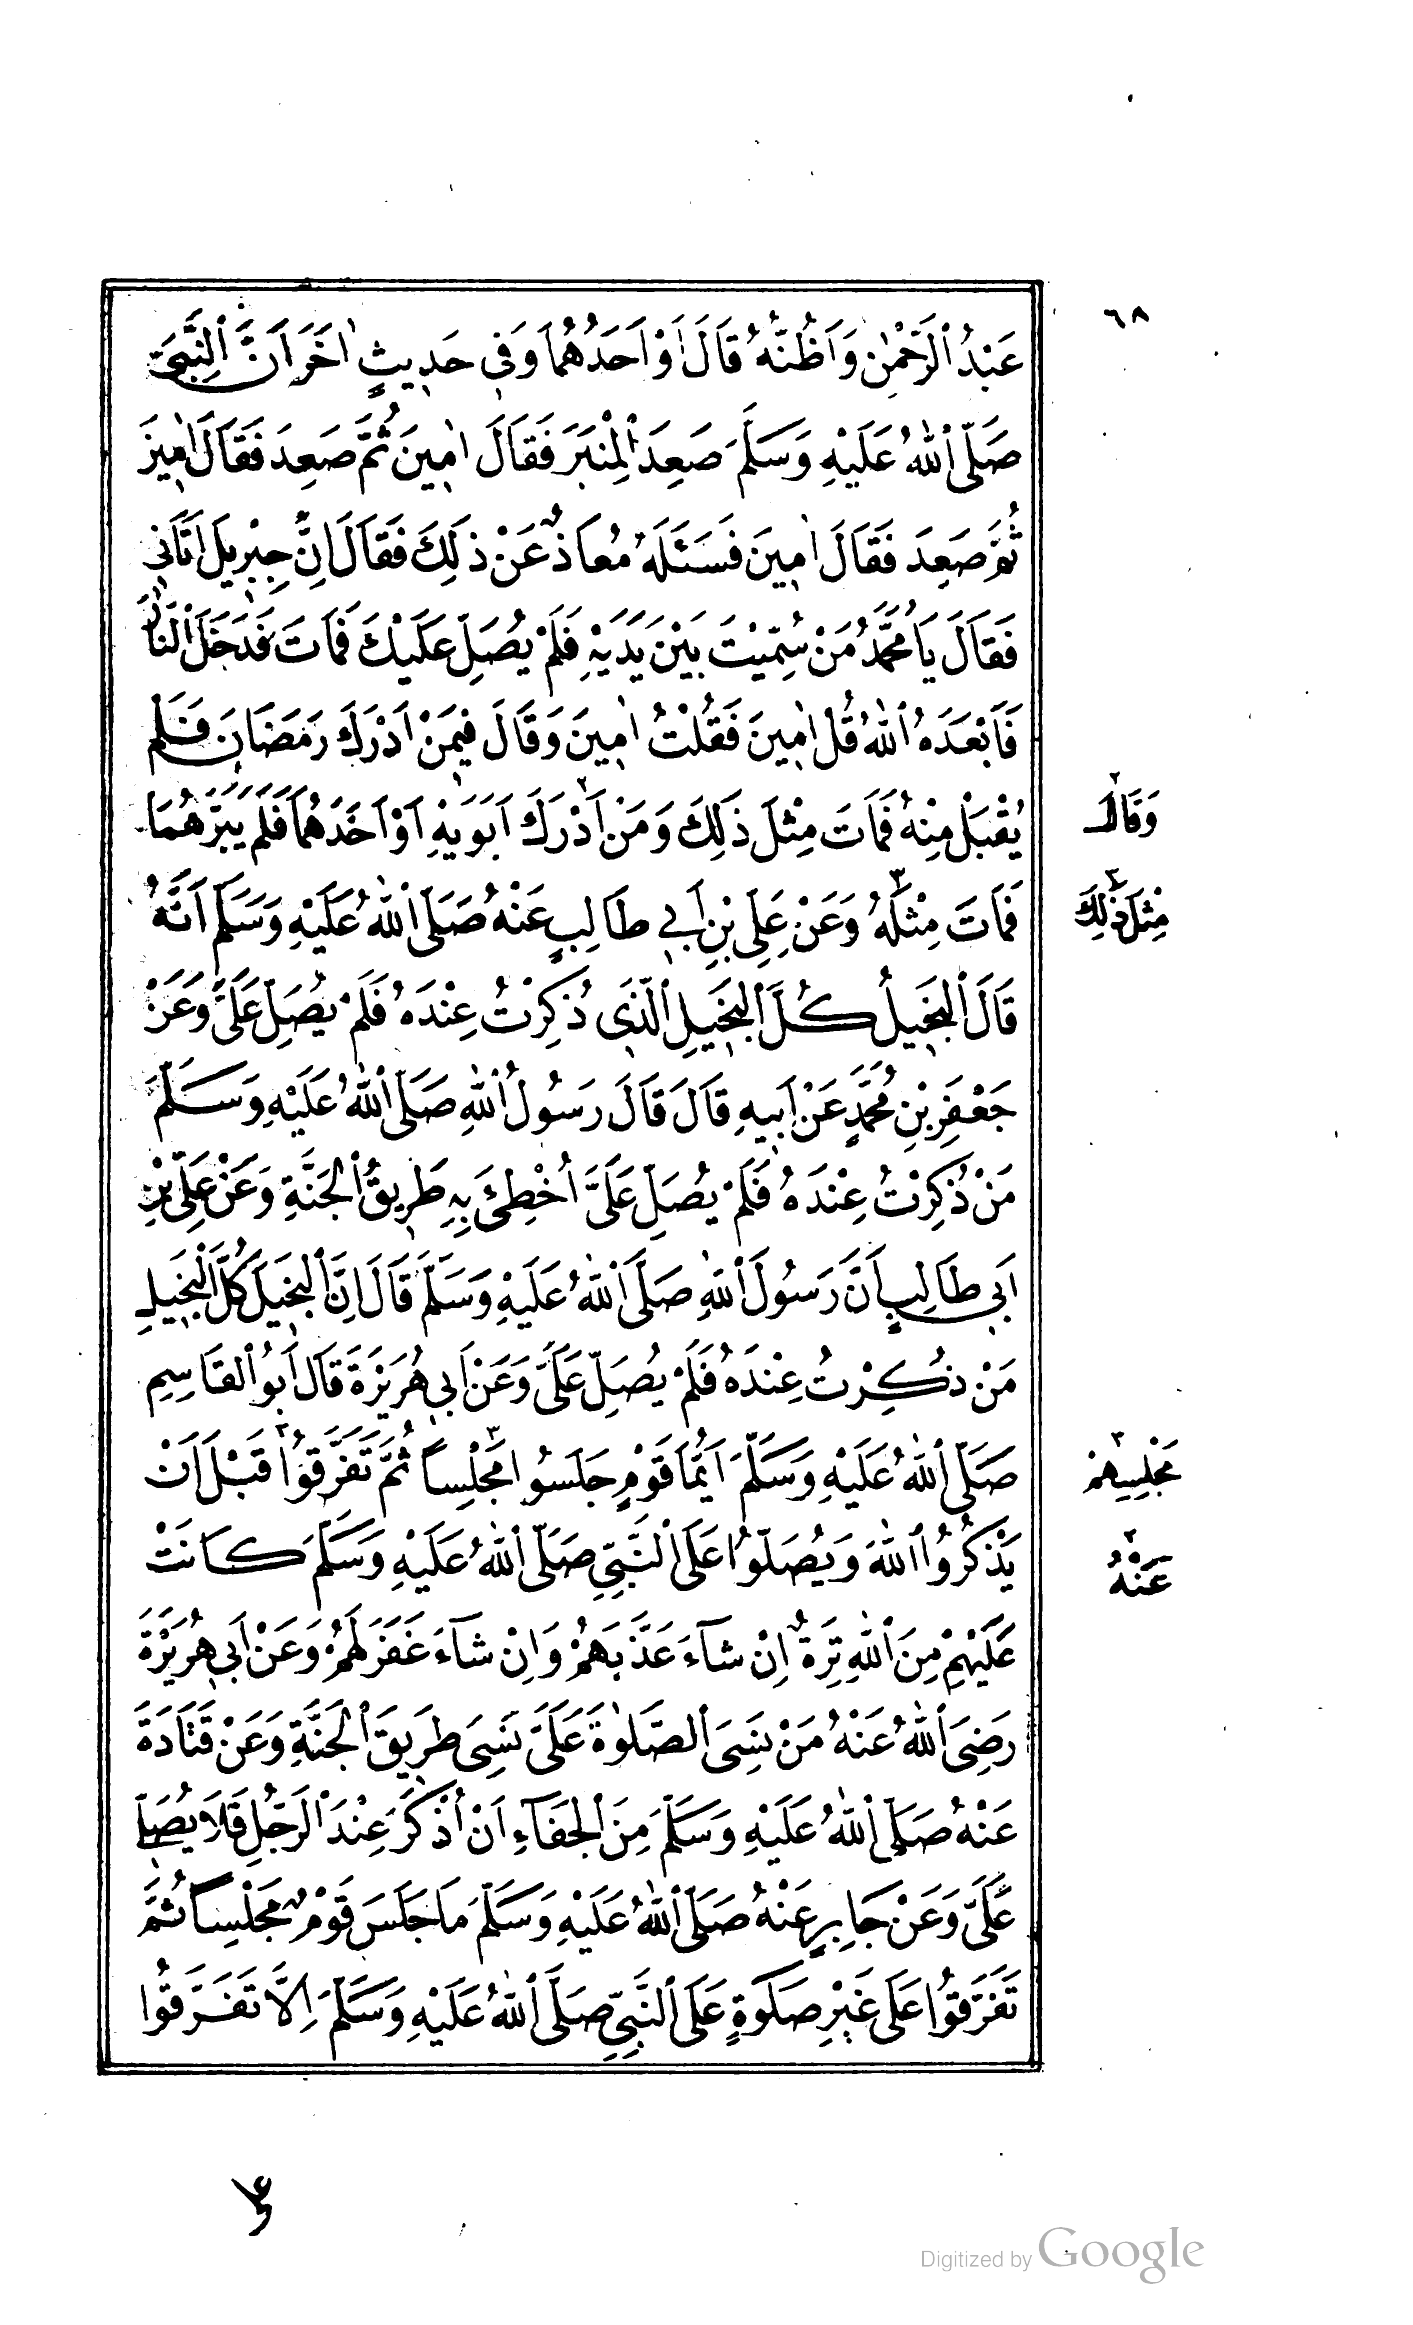 ٦٨
عَبْدُ ٱلرَّحْمٰنِ وَاَظُنُّهُ قَالَ اَوْ اَحَدُهُمَا وَفِي حَدِيثٍ اٰخَرَ اَنَّ ٱلنَّبِيَّ
صَلَّى ٱللّٰهُ عَلَيْهِ وَسَلَّمَ صَعِدَ ٱلْمِنْبَرَ فَقَالَ اٰمِينَ ثُمَّ صَعِدَ فَقَالَ اٰمِينَ
ثُمَّ صَعِدَ فَقَالَ اٰمِينَ فَسَئَلَهُ مُعَاذٌ عَنْ ذٰلِكَ فَقَالَ اِنَّ جِبْرِيلَ اَتَانِي
فَقَالَ يَا مُحَمَّدُ مَنْ سُمِّيْتَ بَيْنَ يَدَيْهِ فَلَمْ يُصَلِّ عَلَيْكَ فَمَاتَ فَدَخَلَ ٱلنَّارَ
فَاَبْعَدَهُ ٱللّٰهُ قُلْ اٰمِينَ فَقُلْتُ اٰمِينَ وَقَالَ فِيمَنْ اَدْرَكَ رَمَضَانَ فَلَمْ
يُقْبَلْ مِنْهُ فَمَاتَ مِثْلَ ذٰلِكَ وَمَنْ اَدْرَكَ اَبَوَيْهِ اَوْ اَحَدَهُمَا فَلَمْ يَبَرَّهُمَا
وَقَالَ
فَمَاتَ مِثْلَهُ وَعَنْ عَلِيِّ بْنِ اَبِي طَالِبٍ عَنْهُ صَلَّى ٱللّٰهُ عَلَيْهِ وَسَلَّمَ اَنَّهُ
مِثْلَ ذٰلِكَ
قَالَ ٱلْبَخِيلُ كُلَّ ٱلْبَخِيلِ ٱلَّذِي ذُكِرْتُ عِنْدَهُ فَلَمْ يُصَلِّ عَلَيَّ وَعَنْ
جَعْفَرِ بْنِ مُحَمَّدٍ عَنْ اَبِيهِ قَالَ قَالَ رَسُولُ ٱللّٰهِ صَلَّى ٱللّٰهُ عَلَيْهِ وَسَلَّمَ
مَنْ ذُكِرْتُ عِنْدَهُ فَلَمْ يُصَلِّ عَلَيَّ اُخْطِئَ بِهِ طَرِيقُ ٱلْجَنَّةِ وَعَنْ عَلِيِّ بْنِ
اَبِي طَالِبٍ اَنَّ رَسُولَ ٱللّٰهِ صَلَّى ٱللّٰهُ عَلَيْهِ وَسَلَّمَ قَالَ اِنَّ ٱلْبَخِيلَ كُلَّ ٱلْبَخِيلِ
مَنْ ذُكِرْتُ عِنْدَهُ فَلَمْ يُصَلِّ عَلَيَّ وَعَنْ اَبِي هُرَيْرَةَ قَالَ اَبُو ٱلْقَاسِمِ
صَلَّى ٱللّٰهُ عَلَيْهِ وَسَلَّمَ اَيُّمَا قَوْمٍ جَلَسُوا مَجْلِسًا ثُمَّ تَفَرَّقُوا قَبْلَ اَنْ
مَجْلِسِهِمْ
يَذْكُرُوا ٱللّٰهَ وَيُصَلُّوا عَلَى ٱلنَّبِيِّ صَلَّى ٱللّٰهُ عَلَيْهِ وَسَلَّمَ كَانَتْ
عَنْهُ
عَلَيْهِمْ مِنَ ٱللّٰهِ تِرَةٌ اِنْ شَآءَ عَذَّبَهُمْ وَاِنْ شَآءَ غَفَرَ لَهُمْ وَعَنْ اَبِي هُرَيْرَةَ
رَضِيَ ٱللّٰهُ عَنْهُ مَنْ نَسِيَ ٱلصَّلٰوةَ عَلَيَّ نَسِيَ طَرِيقَ ٱلْجَنَّةِ وَعَنْ قَتَادَةَ
عَنْهُ صَلَّى ٱللّٰهُ عَلَيْهِ وَسَلَّمَ مِنَ ٱلْجَفَآءِ اَنْ اُذْكَرَ عِنْدَ ٱلرَّجُلِ فَلَا يُصَلِّي
عَلَيَّ وَعَنْ جَابِرٍ عَنْهُ صَلَّى ٱللّٰهُ عَلَيْهِ وَسَلَّمَ مَا جَلَسَ قَوْمٌ مَجْلِسًا ثُمَّ
تَفَرَّقُوا عَلَى غَيْرِ صَلٰوةٍ عَلَى ٱلنَّبِيِّ صَلَّى ٱللّٰهُ عَلَيْهِ وَسَلَّمَ اِلَّا تَفَرَّقُوا
Digitized by Google